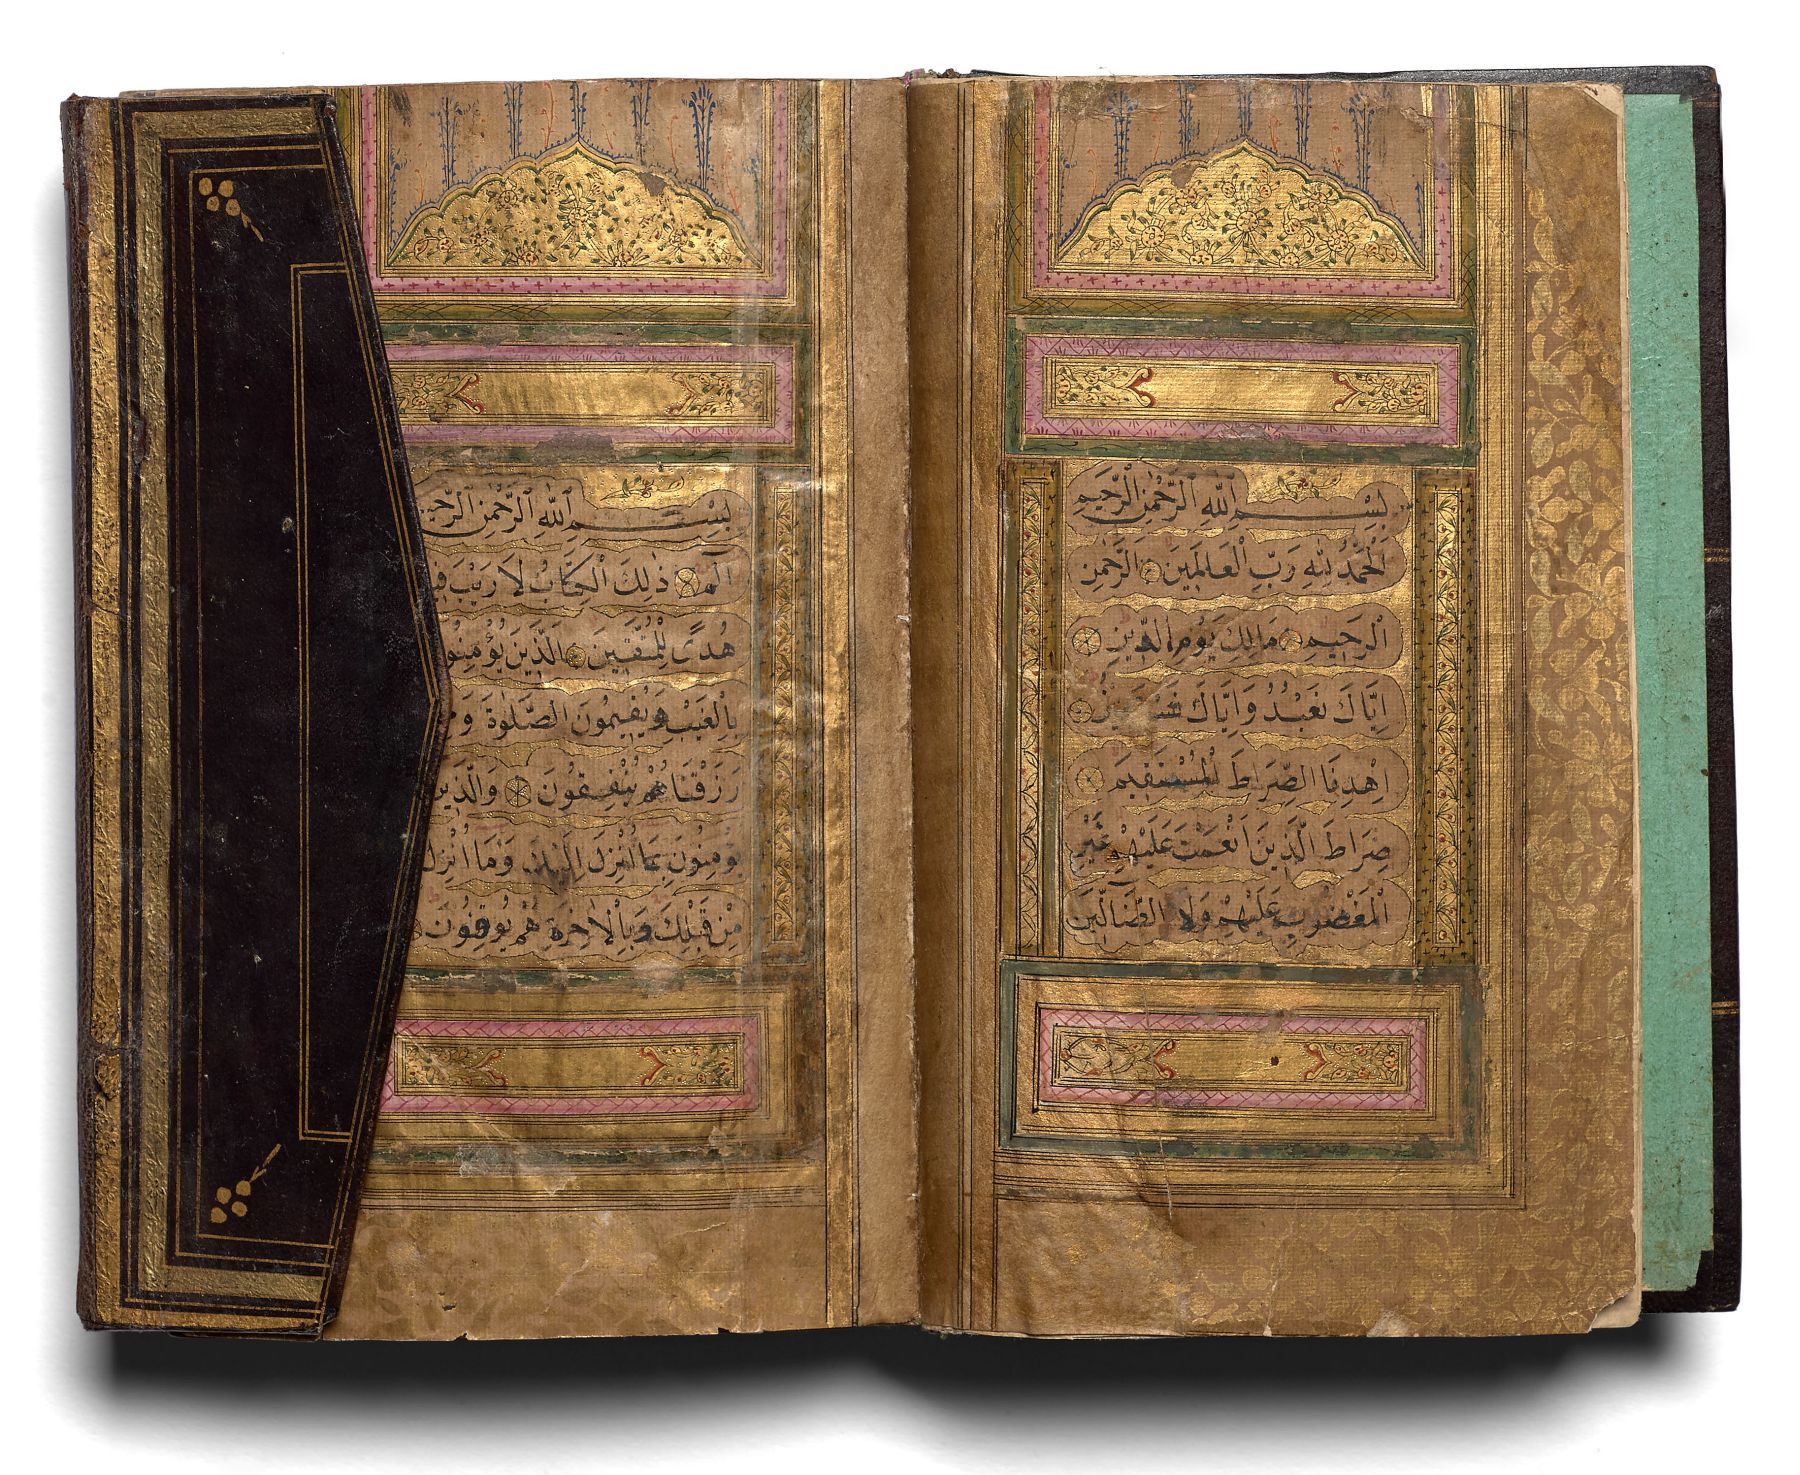 بِسْمِ اللّٰهِ الرَّحْمٰنِ الرَّحِيمِ
اَلْحَمْدُ لِلّٰهِ رَبِّ الْعَالَمِينَ اَلرَّحْمٰنِ
الرَّحِيمِ مَالِكِ يَوْمِ الدِّينِ
اِيَّاكَ نَعْبُدُ وَاِيَّاكَ نَسْتَعِينُ
اِهْدِنَا الصِّرَاطَ الْمُسْتَقِيمَ
صِرَاطَ الَّذِينَ اَنْعَمْتَ عَلَيْهِمْ غَيْرِ
الْمَغْضُوبِ عَلَيْهِمْ وَلَا الضَّالِّينَ
بِسْمِ اللّٰهِ الرَّحْمٰنِ الرَّحِيمِ
الم ذٰلِكَ الْكِتَابُ لَا رَيْبَ
هُدًى لِلْمُتَّقِينَ اَلَّذِينَ يُؤْمِنُونَ
بِالْغَيْبِ وَيُقِيمُونَ الصَّلٰوةَ
رَزَقْنَاهُمْ يُنْفِقُونَ وَالَّذِينَ
يُؤْمِنُونَ بِمَا اُنْزِلَ اِلَيْكَ وَمَا اُنْزِلَ
مِنْ قَبْلِكَ وَبِالْاٰخِرَةِ هُمْ يُوقِنُونَ